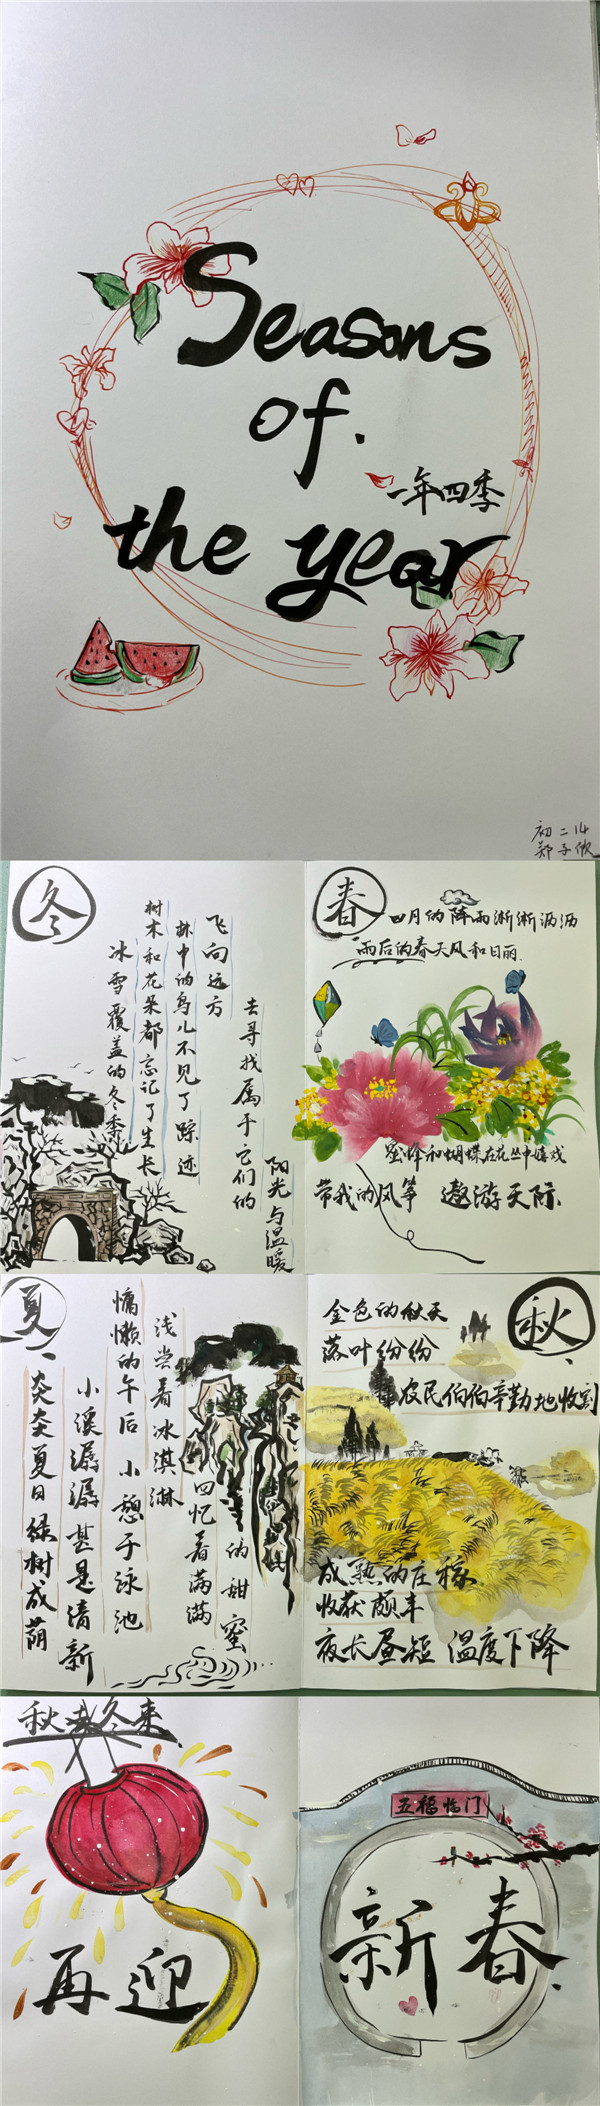 Seasons
of.
一年四季
the year
初二14
郑子欣
冬
冰雪覆盖的冬季
树木和花朵都忘记了生长
林中的鸟儿不见了踪迹
飞向远方
去寻找属于它们的
阳光与温暖
春
四月的阵雨淅淅沥沥
雨后的春天风和日丽.
蜜蜂和蝴蝶在花丛中嬉戏
带我的风筝 遨游天际.
夏
炎炎夏日绿树成荫
小溪潺潺甚是清新
慵懒的午后 小憩于泳池
浅尝着冰淇淋
回忆着满满
的甜蜜
秋
金色的秋天
落叶纷纷
农民伯伯辛勤地收割
成熟的庄稼
收获颇丰
夜长昼短 温度下降
秋去冬来
再迎
五福临门
新春